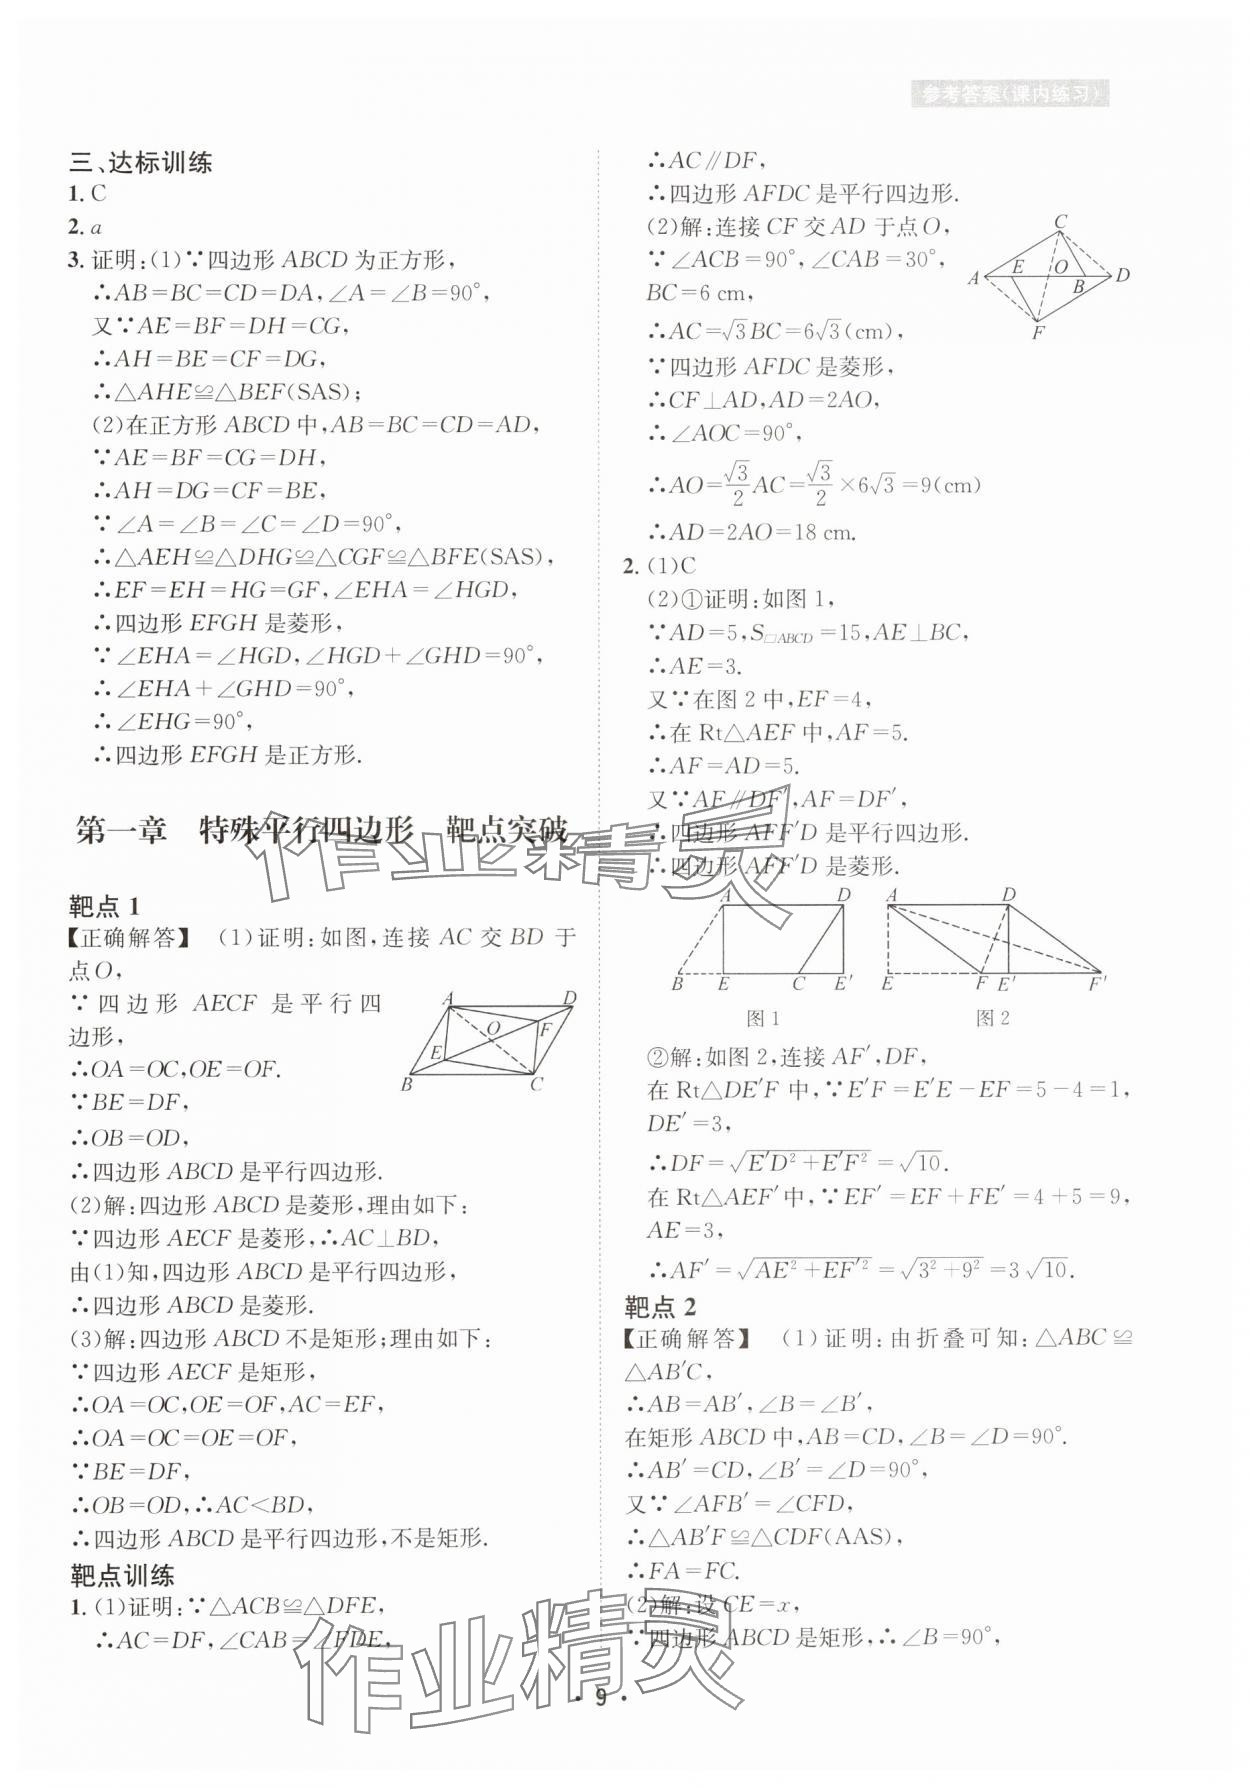 参考答案(课内练习)
三、达标训练
1. C
2. a
3. 证明:(1)∵四边形 ABCD 为正方形,
∴AB=BC=CD=DA,∠A=∠B=90°,
又∵AE=BF=DH=CG,
∴AH=BE=CF=DG,
∴△AHE≌△BEF(SAS);
(2)在正方形 ABCD 中,AB=BC=CD=AD,
∵AE=BF=CG=DH,
∴AH=DG=CF=BE,
∵∠A=∠B=∠C=∠D=90°,
∴△AEH≌△DHG≌△CGF≌△BFE(SAS),
∴EF=EH=HG=GF,∠EHA=∠HGD,
∴四边形 EFGH 是菱形,
∵∠EHA=∠HGD,∠HGD+∠GHD=90°,
∴∠EHA+∠GHD=90°,
∴∠EHG=90°,
∴四边形 EFGH 是正方形.
第一章 特殊平行四边形 靶点突破
靶点 1
【正确解答】 (1)证明:如图,连接 AC 交 BD 于
点O,
∵四边形 AECF 是平行四
边形,
∴OA=OC,OE=OF.
∵BE=DF,
∴OB=OD,
∴四边形 ABCD 是平行四边形.
(2)解:四边形 ABCD 是菱形,理由如下:
∵四边形 AECF 是菱形,∴AC⊥BD,
由(1)知,四边形 ABCD 是平行四边形,
∴四边形 ABCD 是菱形.
(3)解:四边形 ABCD 不是矩形;理由如下:
∵四边形 AECF 是矩形,
∴OA=OC,OE=OF,AC=EF,
∴OA=OC=OE=OF,
∵BE=DF,
∴OB=OD,∴AC<BD,
∴四边形 ABCD 是平行四边形,不是矩形.
靶点训练
1. (1)证明:∵△ACB≌△DFE,
∴AC=DF,∠CAB=∠FDE,
A D O F E B C
∴AC∥DF,
∴四边形 AFDC 是平行四边形.
(2)解:连接 CF 交 AD 于点O,
∵∠ACB=90°,∠CAB=30°,
BC=6 cm,
∴AC=√3BC=6√3(cm),
∵四边形 AFDC 是菱形,
∴CF⊥AD,AD=2AO,
∴∠AOC=90°,
∴AO=√3/2AC=√3/2×6√3=9(cm)
∴AD=2AO=18 cm.
C A E O B D F
2. (1)C
(2)①证明:如图 1,
∵AD=5,S▱ABCD=15,AE⊥BC,
∴AE=3.
又∵在图 2 中,EF=4,
∴在 Rt△AEF 中,AF=5.
∴AF=AD=5.
又∵AF∥DF′,AF=DF′,
∴四边形 AFF′D 是平行四边形.
∴四边形 AFF′D 是菱形.
A D A D
B E C E′ E F E′ F′
图 1 图 2
②解:如图 2,连接 AF′,DF,
在 Rt△DE′F 中,∵E′F=E′E-EF=5-4=1,
DE′=3,
∴DF=√(E′D²+E′F²)=√10.
在 Rt△AEF′中,∵EF′=EF+FE′=4+5=9,
AE=3,
∴AF′=√(AE²+EF′²)=√(3²+9²)=3√10.
靶点 2
【正确解答】 (1)证明:由折叠可知:△ABC≌
△AB′C,
∴AB=AB′,∠B=∠B′,
在矩形 ABCD 中,AB=CD,∠B=∠D=90°.
∴AB′=CD,∠B′=∠D=90°,
又∵∠AFB′=∠CFD,
∴△AB′F≌△CDF(AAS),
∴FA=FC.
(2)解:设 CE=x,
∵四边形 ABCD 是矩形,∴∠B=90°,
作业精灵
作业精灵
· 9 ·